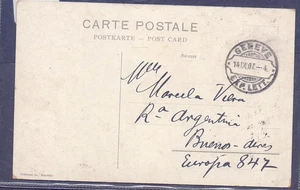 CARTE POSTALE
POSTKARTE — POST CARD
GENÈVE
14.IX.07.—4
EXP. LETT.
Mlle
Marcela Viera
Rca Argentina
Buenos-Aires
Europa 847